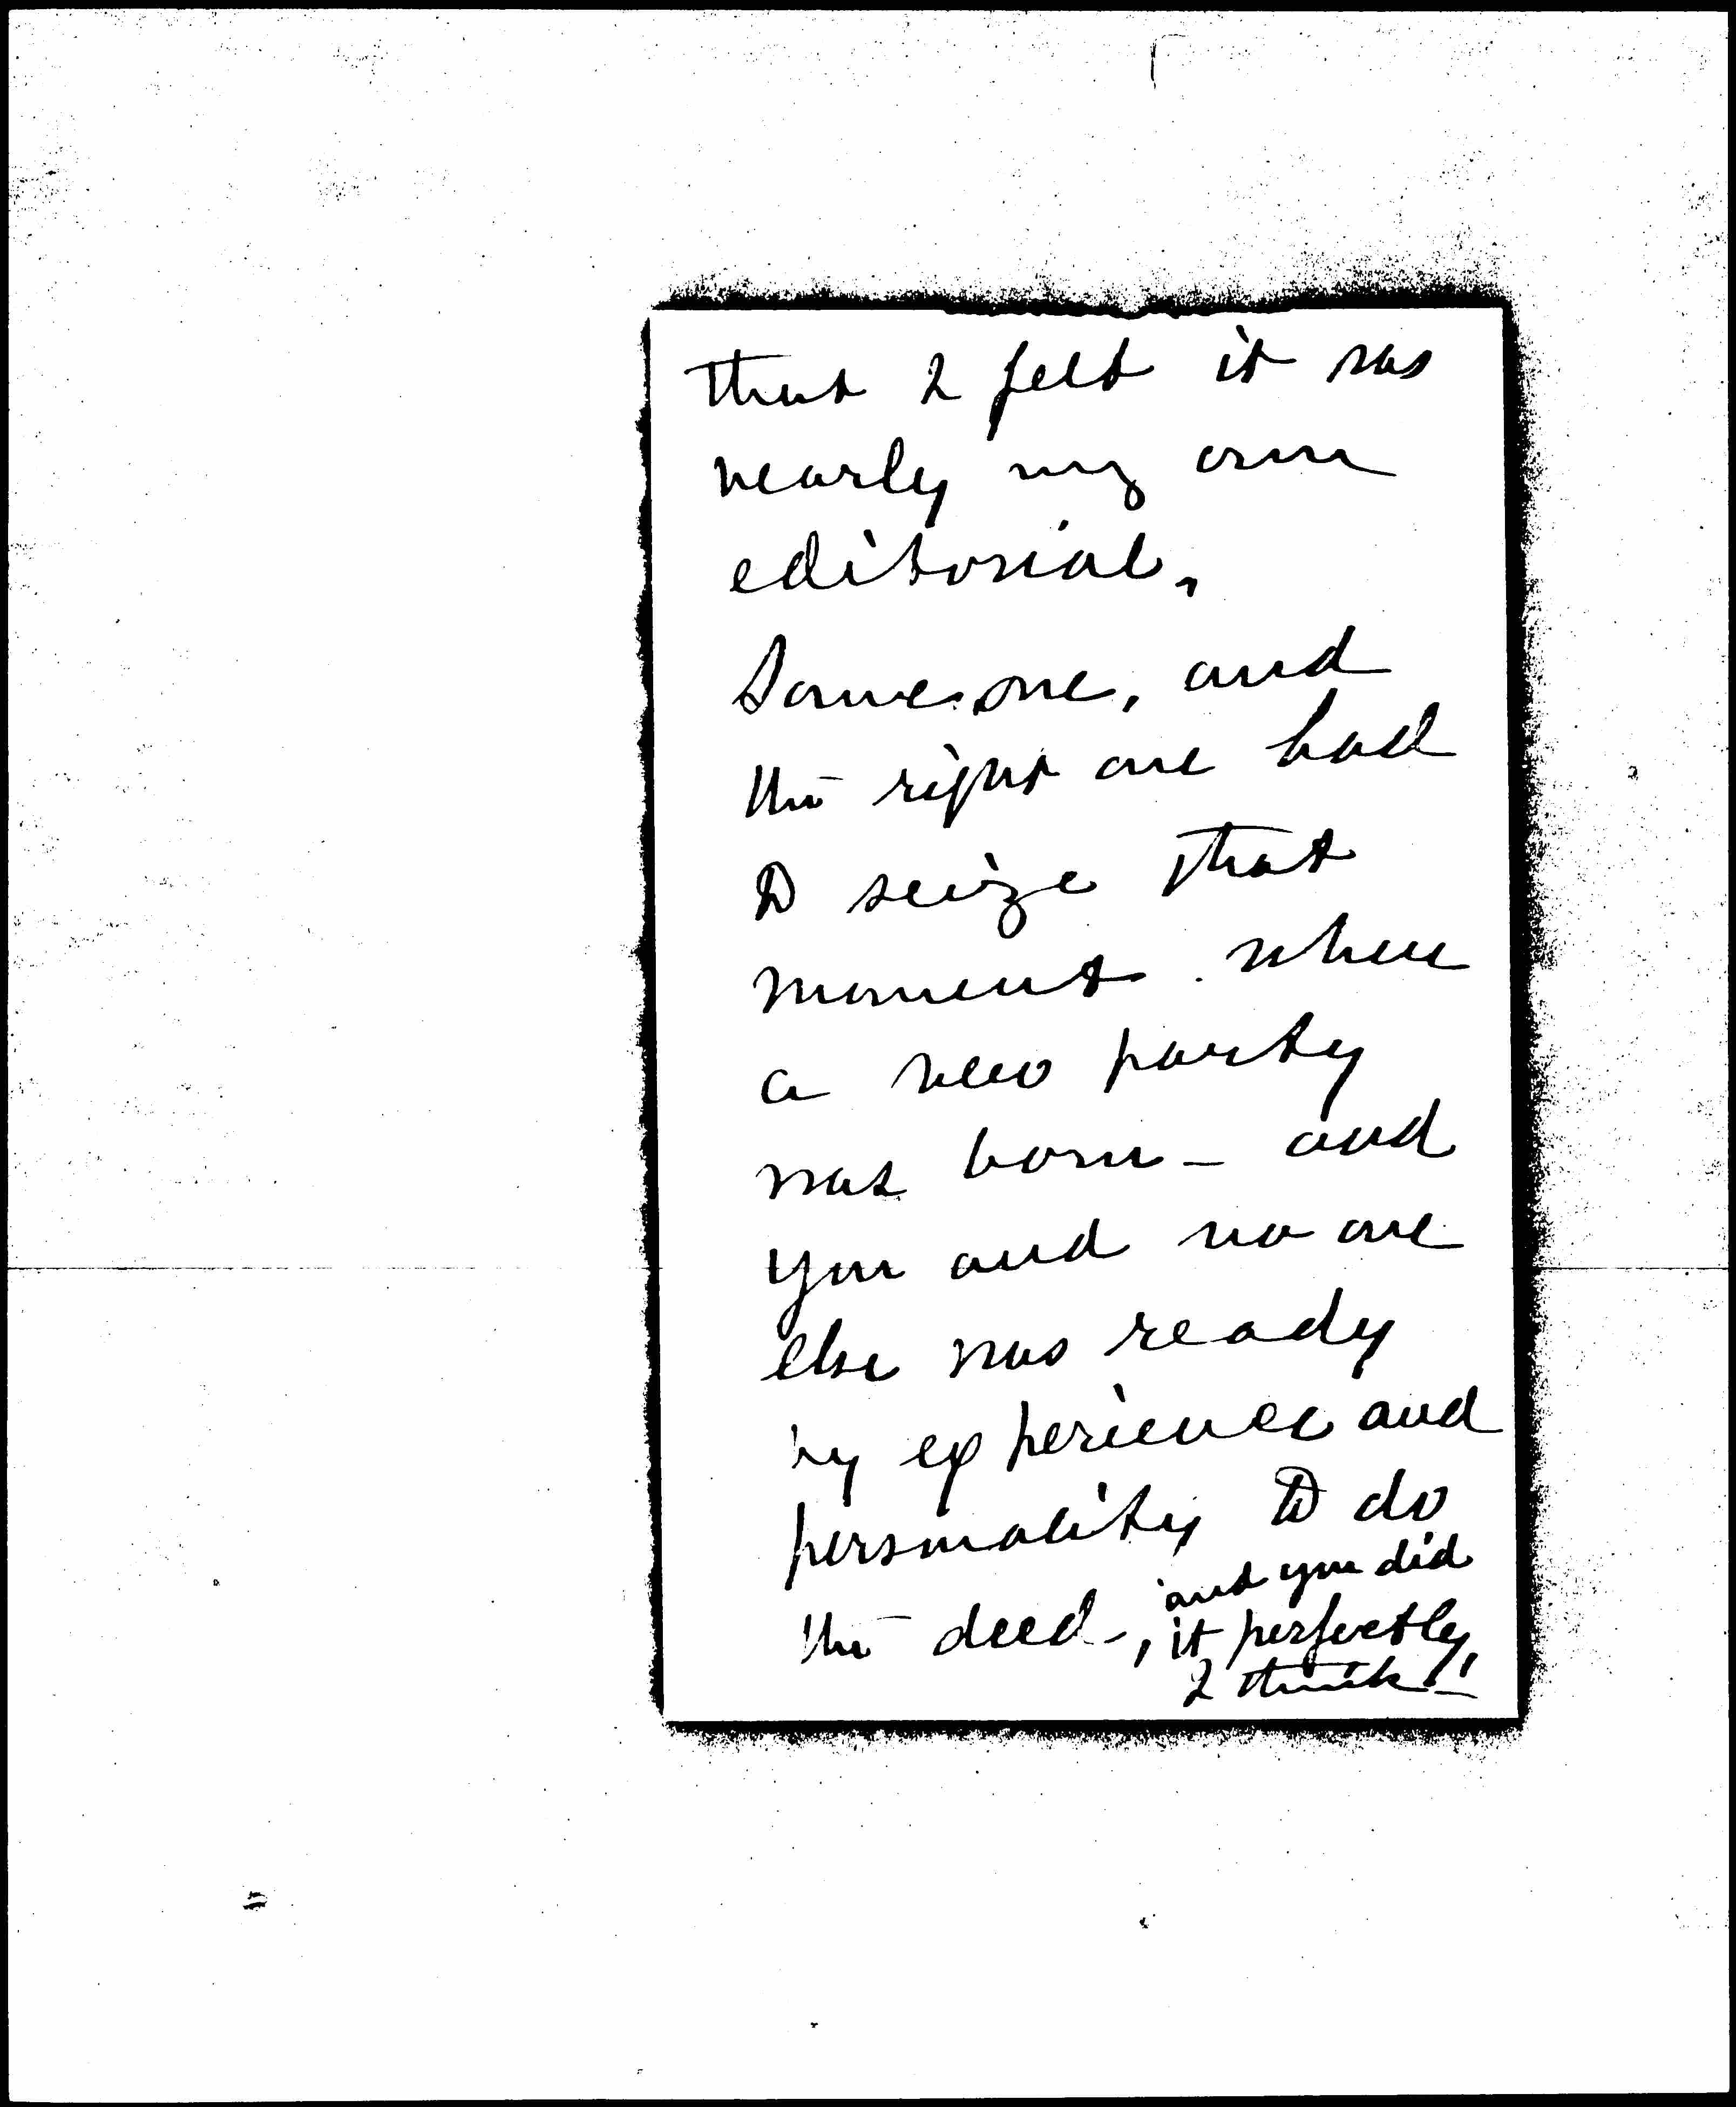 that I felt it was
nearly my own
editorial.
Someone, and
the right one had
to seize that
moment when
a new party
was born - and
you and no one
else was ready
by experience and
personality to do
the deed -, and you did
it perfectly,
I think -